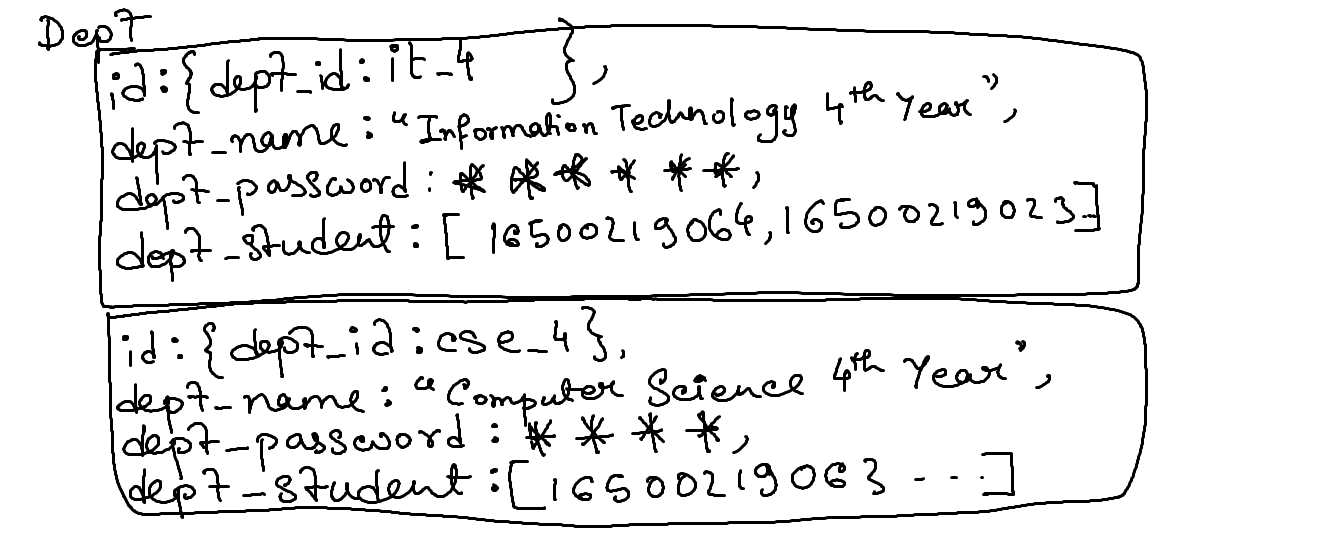 Dept
id:{ dept_id: it_4 },
dept_name: "Information Technology 4th Year",
dept_password: ******,
dept_student: [ 16500219064, 16500219023]
id:{ dept_id: cse_4},
dept_name: "Computer Science 4th Year",
dept_password: ****,
dept_student:[16500219063 ...]